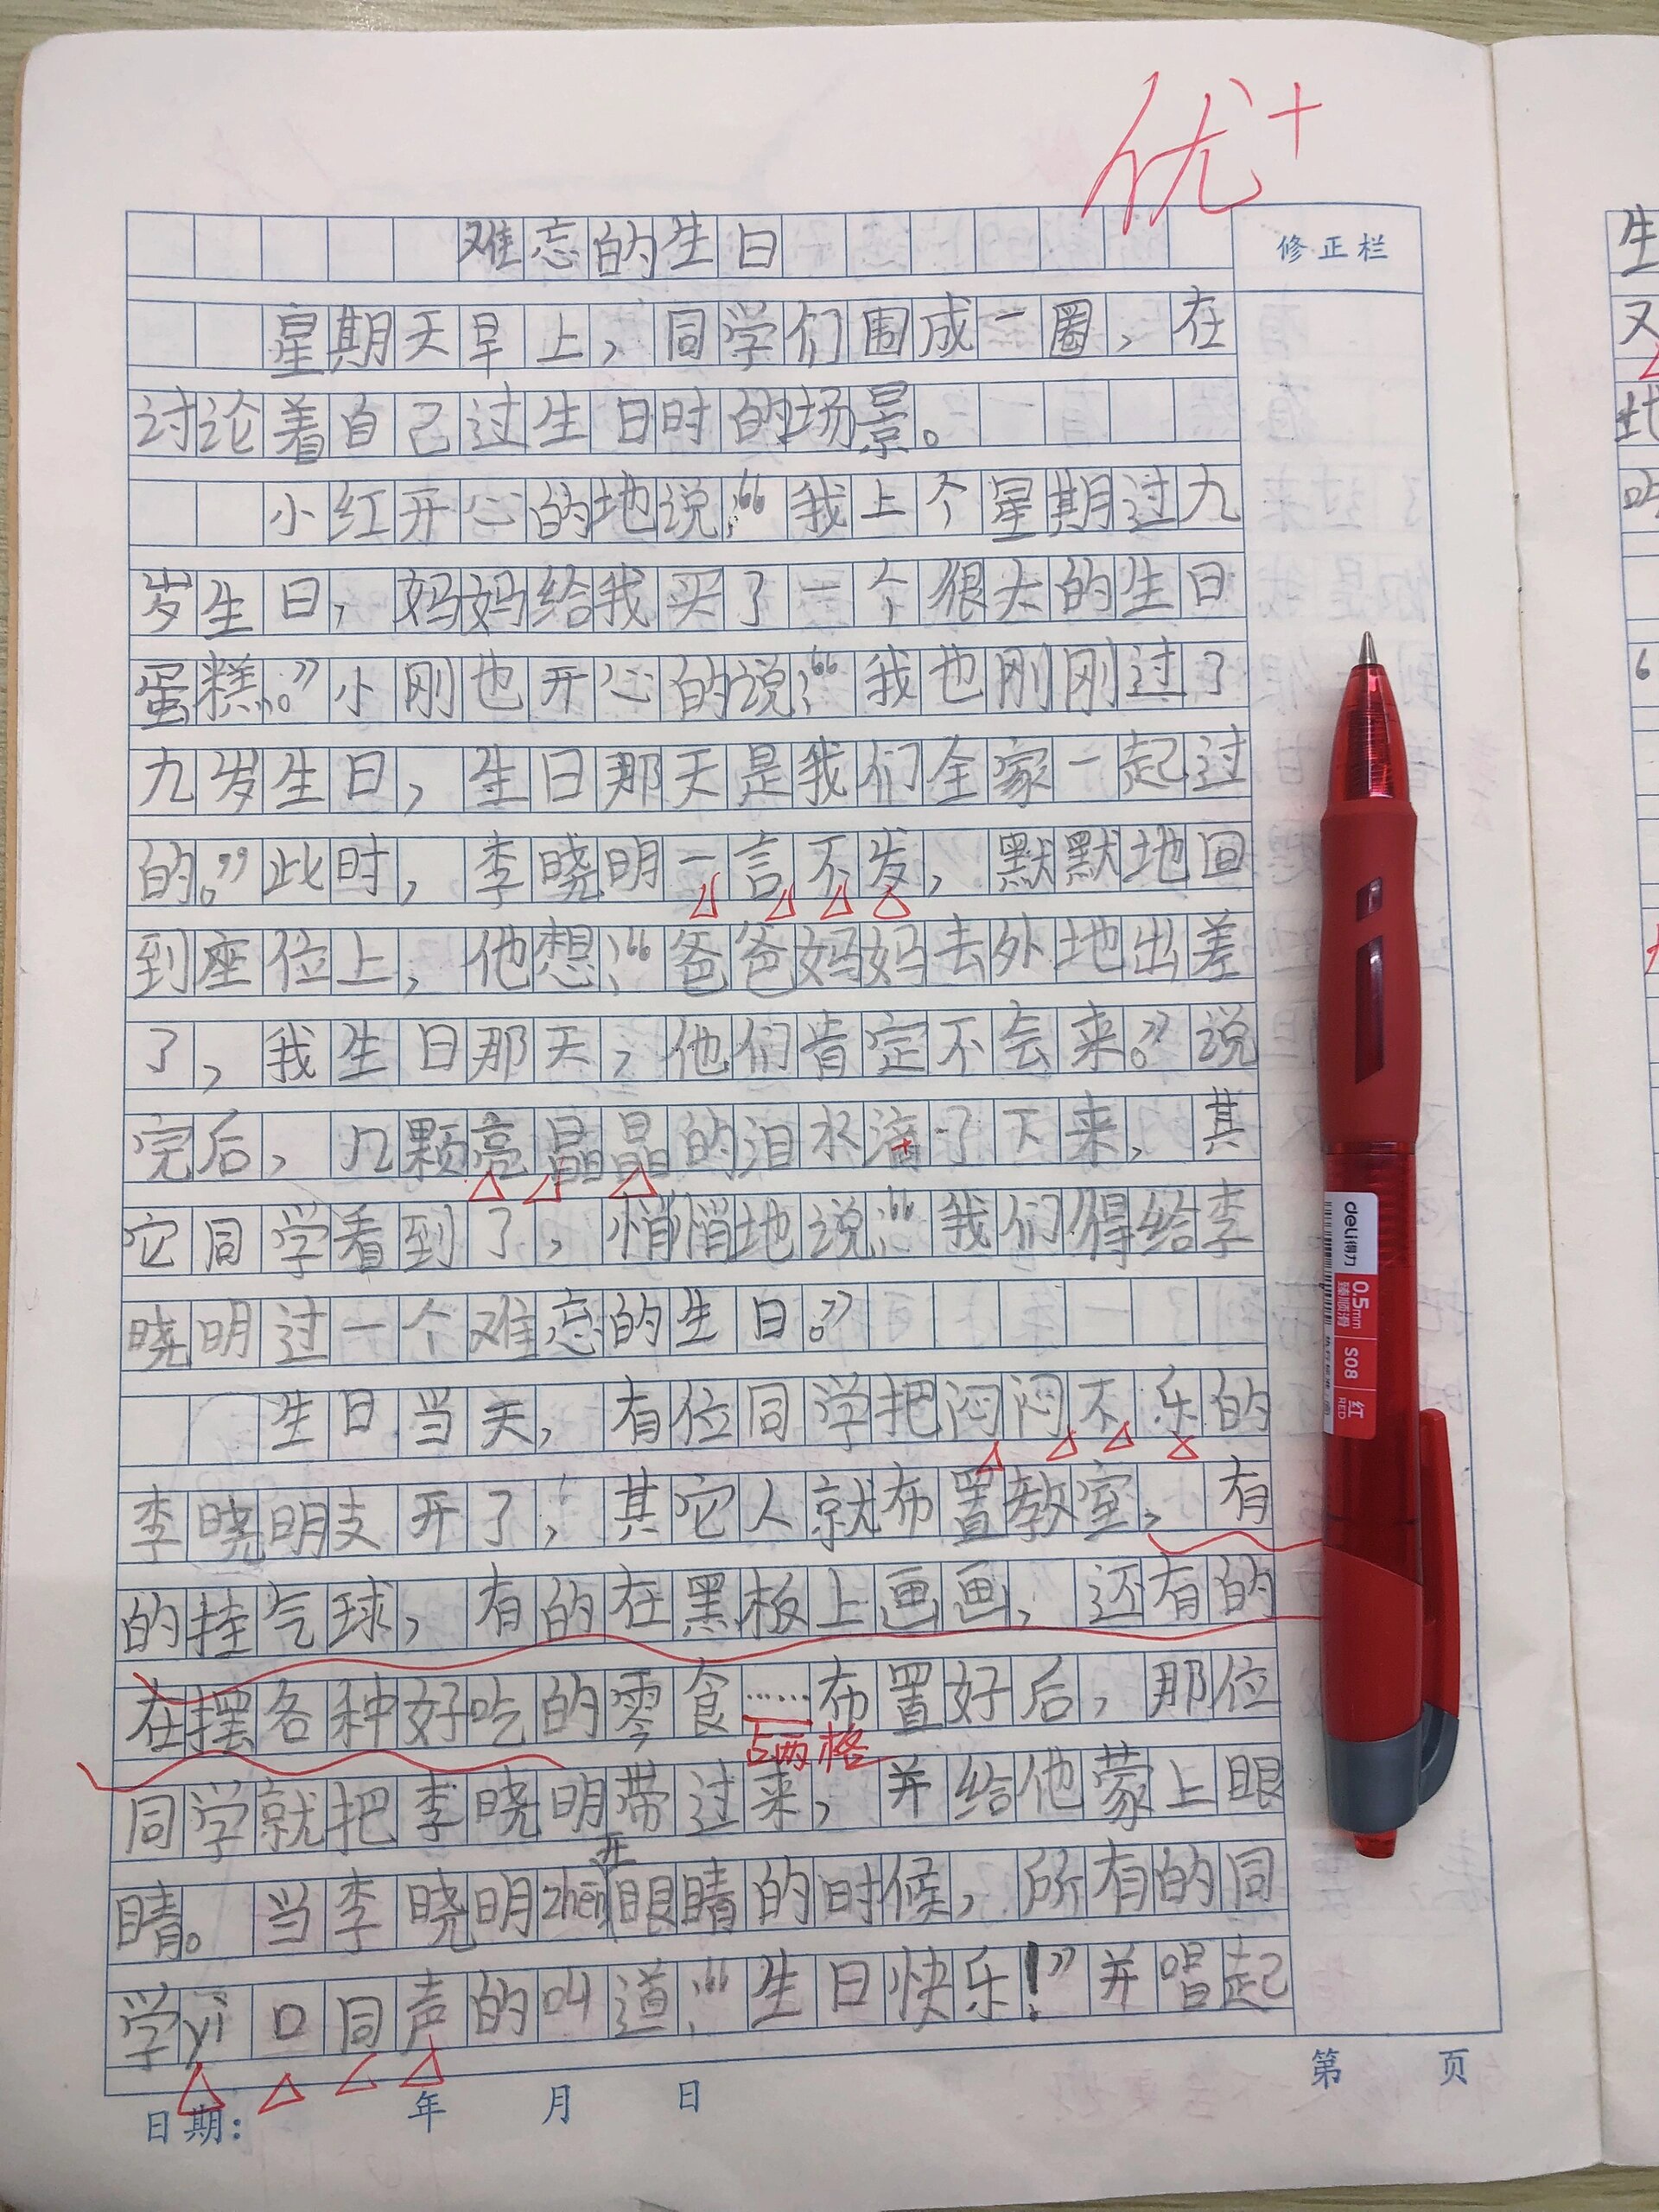 优+
难忘的生日
修正栏
星期天早上，同学们围成一圈，在
讨论着自己过生日时的场景。
小红开心的地说：“我上个星期过九
岁生日，妈妈给我买了一个很大的生日
蛋糕。”小刚也开心的说：“我也刚刚过了
九岁生日，生日那天是我们全家一起过
的。”此时，李晓明一言不发，默默地回
到座位上，他想：“爸爸妈妈去外地出差
了，我生日那天，他们肯定不会来。”说
完后，几颗亮晶晶的泪水滴了下来，其
它同学看到了，悄悄地说：“我们得给李
晓明过一个难忘的生日。”
生日当天，有位同学把闷闷不乐的
李晓明支开了，其它人就布置教室，有
的挂气球，有的在黑板上画画，还有的
在摆各种好吃的零食……布置好后，那位
占两格
同学就把李晓明带过来，并给他蒙上眼
开
睛。当李晓明zhēng眼睛的时候，所有的同
学yì口同声的叫道：“生日快乐！”并唱起
第 页
日期： 年 月 日
deli得力
0.5mm
臻顺滑
S08
红
RED
生
又
此